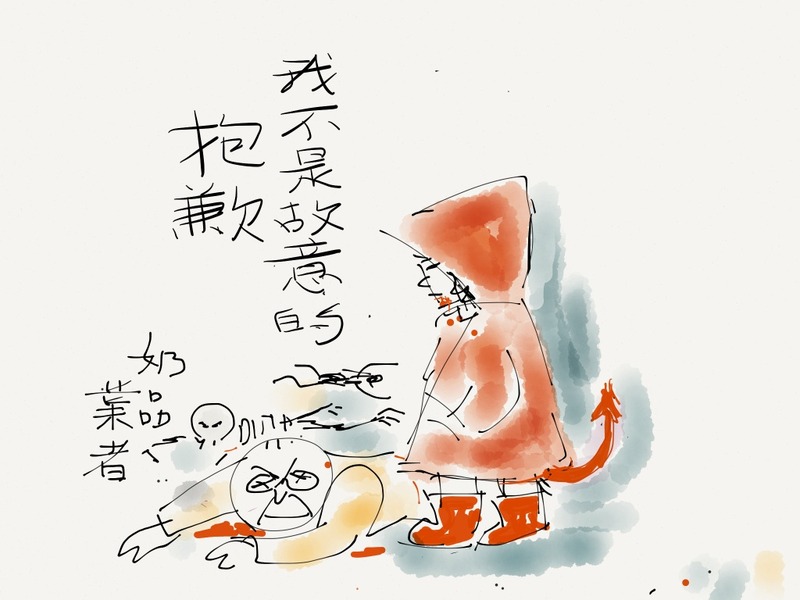 我不是故意的
抱歉
奶品
業者